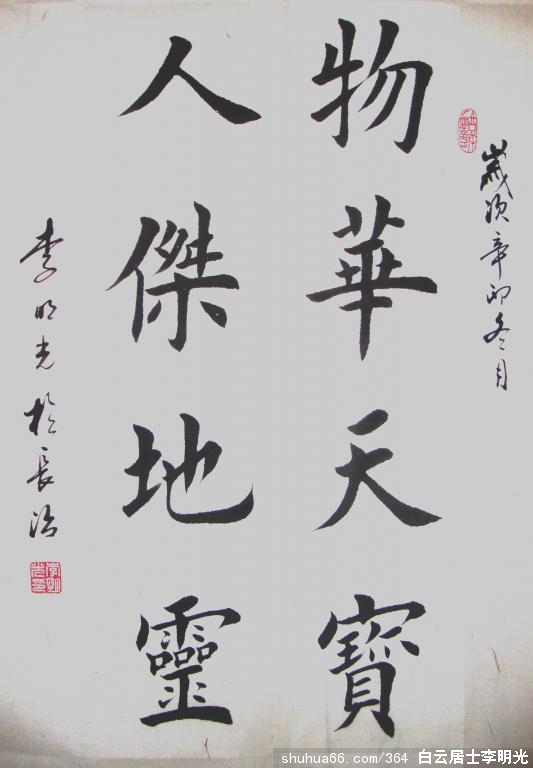 歲次辛卯冬月
物華天寶
人傑地靈
李明光於長治
shuhua66.com/364 白云居士李明光